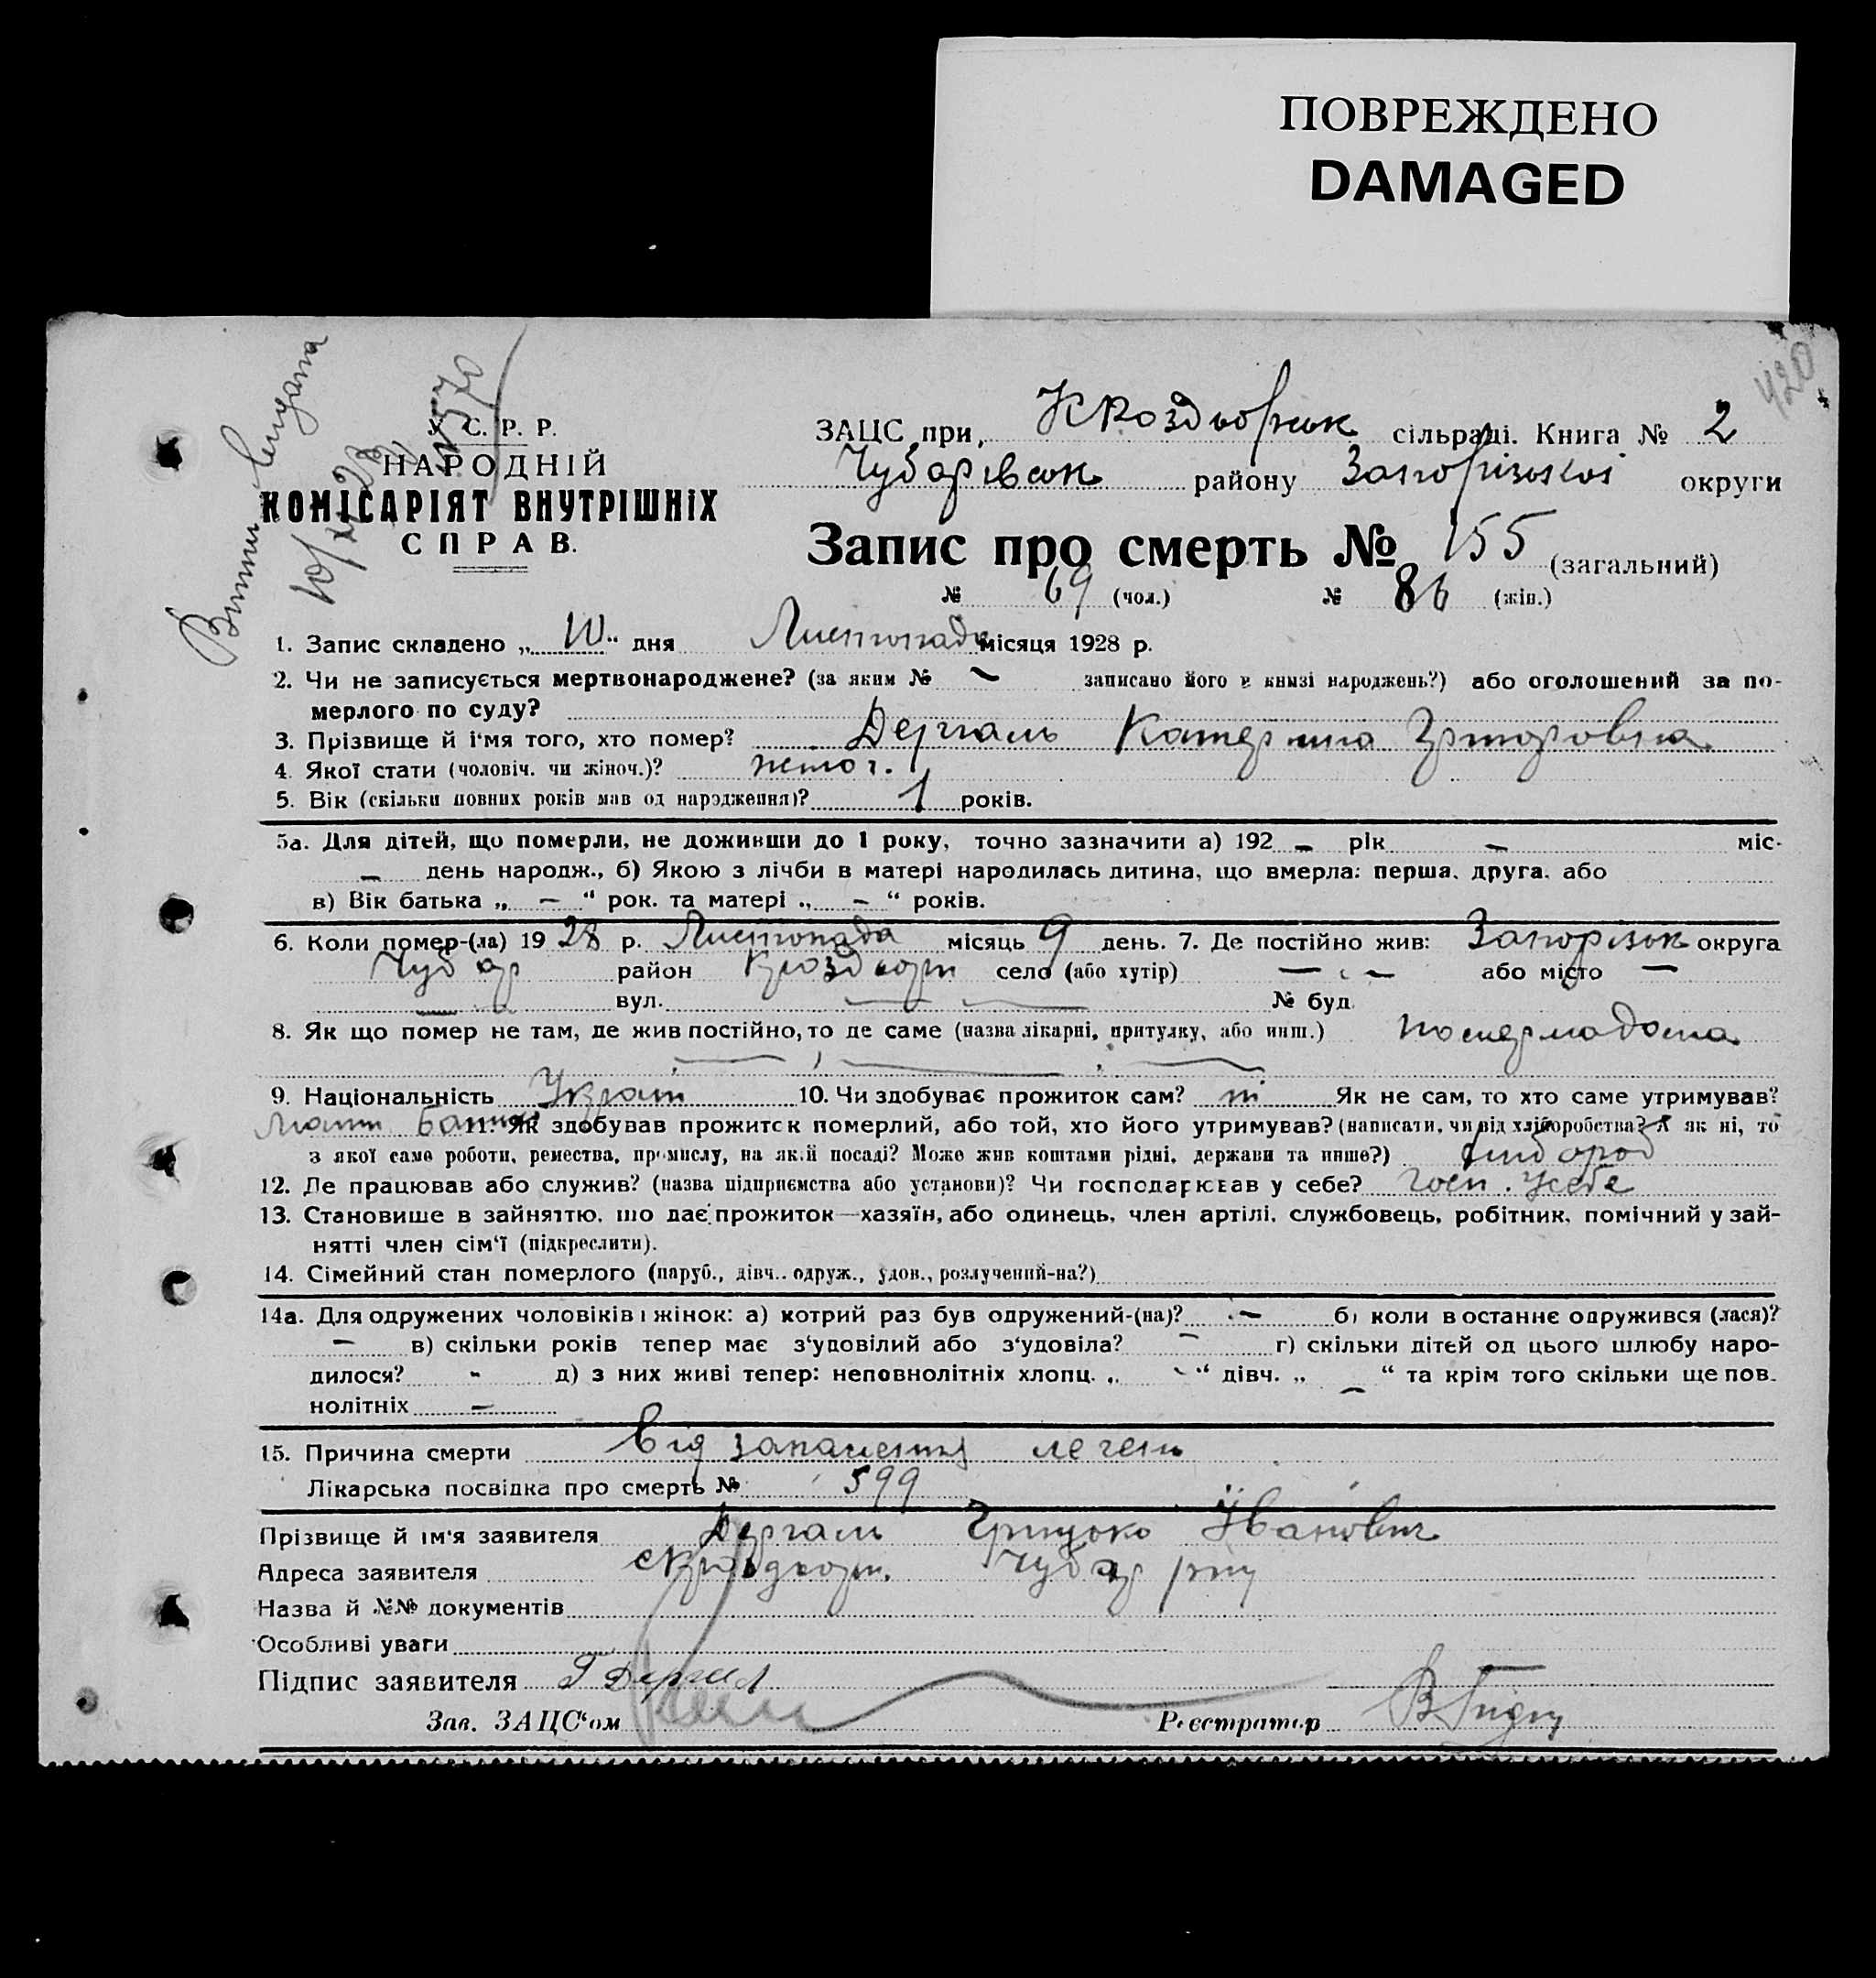 ПОВРЕЖДЕНО
DAMAGED
420
У. С. Р. Р.
НАРОДНІЙ
КОМІСАРІЯТ ВНУТРІШНІХ
СПРАВ.
ЗАЦС при, сільраді. Книга № 2
Чубарівськ району Запорізької округи
Запис про смерть № 155 (загальний)
№ 69 (чол.) № 86 (жін.)
1. Запис складено „ 10 “ дня Листопада місяця 1928 р.
2. Чи не записується мертвонароджене? (за яким № – записано його в книзі народжень?) або оголошений за по-
мерлого по суду?
3. Прізвище й і'мя того, хто помер? Дергаль Катерина
4. Якої стати (чоловіч. чи жіноч.)? жіноч.
5. Вік (скільки повних років мав од народження)? 1 років.
5а. Для дітей, що померли, не доживши до 1 року, точно зазначити а) 192 – рік – міс-
– день народж., б) Якою з лічби в матері народилась дитина, що вмерла: перша, друга, або
в) Вік батька „ – “ рок. та матері „ – “ років.
6. Коли помер-(ла) 1928 р. Листопада місяць 9 день. 7. Де постійно жив: Запорізьк округа
Чубар район село (або хутір) – – або місто –
вул. – – № буд.
8. Як що помер не там, де жив постійно, то де саме (назва лікарні, притулку, або инш.) померла дома
9. Національність Україн 10. Чи здобуває прожиток сам? ні Як не сам, то хто саме утримував?
Батько 11. Як здобував прожиток померлий, або той, хто його утримував? (написати, чи від хліборобства? А як ні, то
з якої саме роботи, ремества, промислу, на якій посаді? Може жив коштами рідні, держави та инше?) хлібороб
12. Де працював або служив? (назва підприємства або установи)? Чи господарював у себе? Госп. у себе
13. Становище в зайняттю, що дає прожиток—хазяїн, або одинець, член артілі, службовець, робітник, помічний у зай-
нятті член сім'ї (підкреслити).
14. Сімейний стан померлого (паруб., дівч., одруж., удов., розлучений-на?)
14а. Для одружених чоловіків і жінок: а) котрий раз був одружений-(на)? – б) коли в останнє одружився (лася)?
– в) скільки років тепер має з'удовілий або з'удовіла? – г) скільки дітей од цього шлюбу наро-
дилося? - д) з них живі тепер: неповнолітніх хлопц. „ - “ дівч. „ – “ та крім того скільки ще пов-
нолітніх –
15. Причина смерти Від запалення легень
Лікарська посвідка про смерть № 599
Прізвище й ім'я заявителя Дергаль Грицько Іванович
Адреса заявителя Чубар р-ну
Назва й №№ документів
Особливі уваги
Підпис заявителя Г Дергал
Зав. ЗАЦС'ом Реєстратор